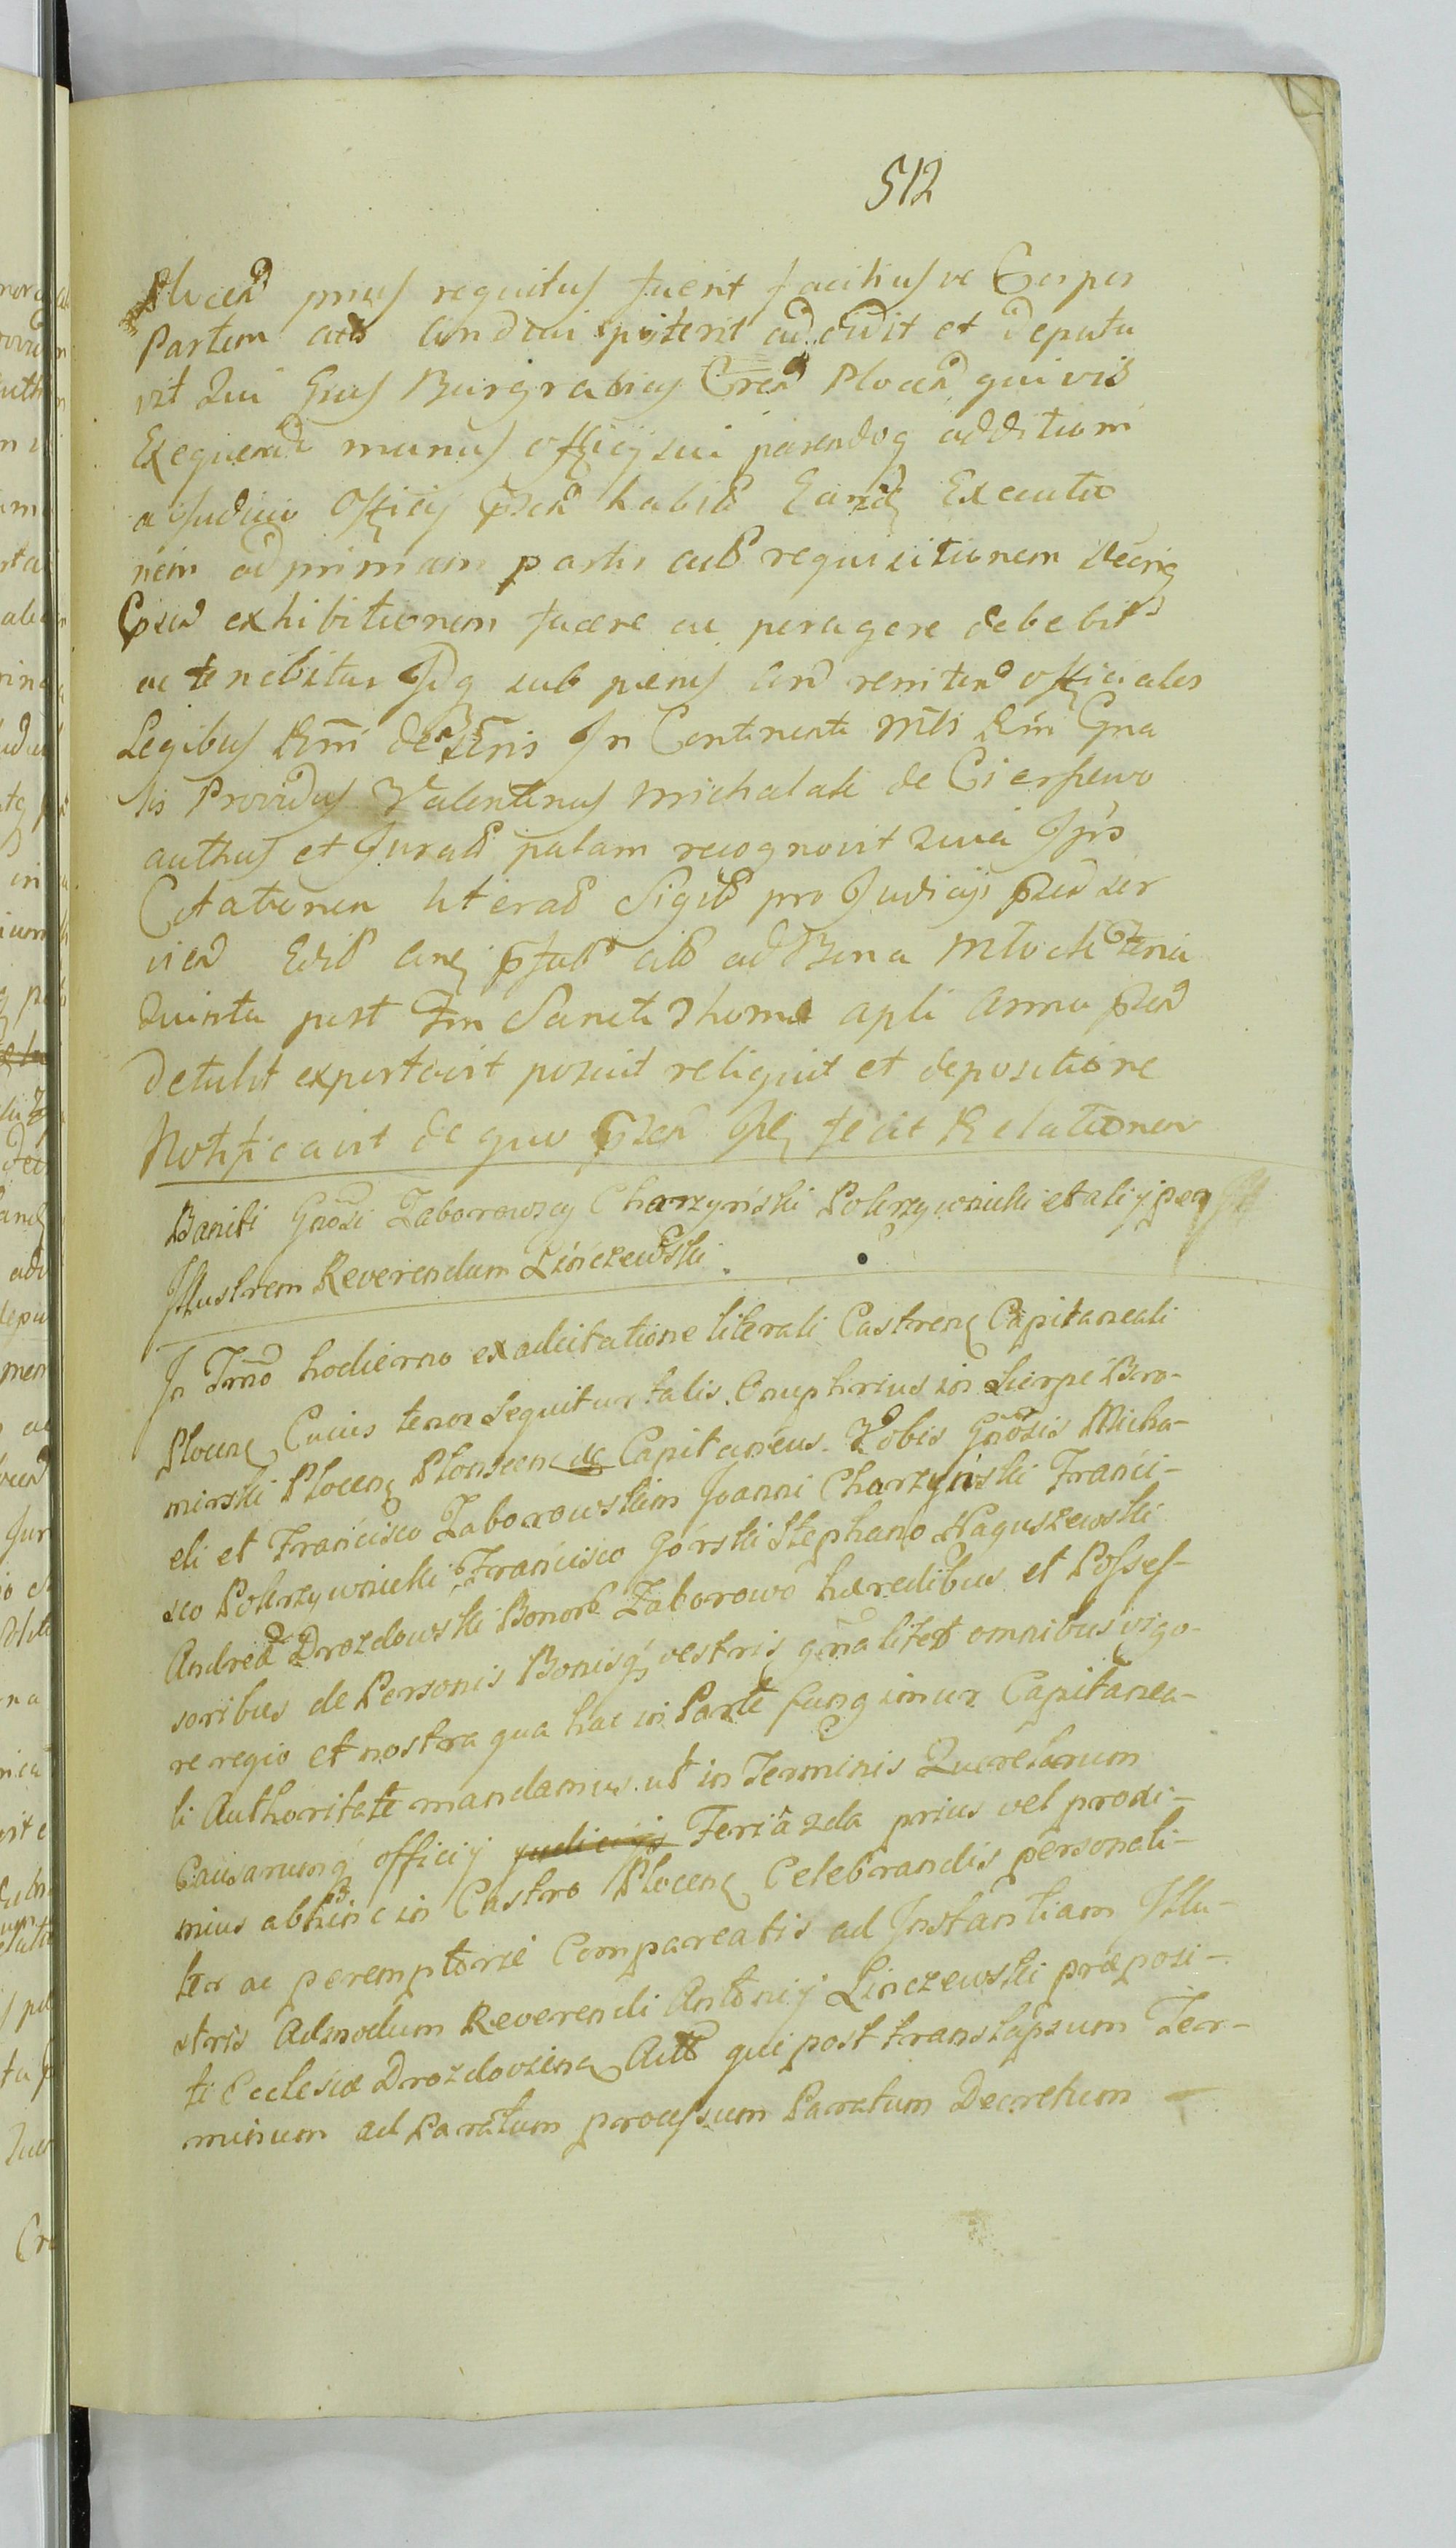 512
Plocen prius requitus fuerit faciliusve Ger per
Partem act adduci poterit addidit et deputa
vit Qui Gnus Burgrabius Cren Plocen quivis
Exequend munus officij sui parendoq additioni
a Judicio Officij psen habita Eand Executio
nem ad primam partis act requisitionem
psen exhibitionem facere ac peragere debebit
ac tenebitur Idq sub poenis in renitend officiales
Legibus Rni In Continenti Mts Rni Gna
lis Providus Valentinus Michalak de Gierszewo
authus et Jurat palam recognovit Quia Ipse
Citationem literat Sigil pro Judicijs psen ser
vien Edit act ad Bona Mlock Feria
Quinta post Fm Sancti Thoma apli Anno psen
detulit exportavit posuit reliquit et depositione
Notificavit de quo psen fecit Relationem
Baniti Gnosi Zaborowscy Charzyński Pokrzywnicki et alij per
Illustrem Reverendum Linczewski.
In Tmno hodierno ex adcitatione literali Castren Capitaneali
Plocen Cuius tenor Sequitur talis. Onuphrius in Sierpc Bro-
mirski Plocen Plonscen de Capitaneus. Vobis Gnosis Micha-
eli et Francisco Zaborowskim Joanni Charzyński Franci-
sco Pokrzywnicki Francisco Górski Stephano Naguszewski
Andrea Drozdowski Bonor Zaborowo hæredibus et Posses-
soribus de Personis Bonisq vestris gnaliter omnibus vigo-
re regio et nostra qua hac in Parte fungimur Capitanea-
li Authoritate mandamus. ut in Terminis Querelarum
Causarumq officij judicijs Feria 2da prius vel proxi-
mius abhinc in Castro Plocen Celebrandis personali-
ter ac peremptorie Compareatis ad Instantiam Illu-
stris Admodum Reverendi Antonij Linczewski præposi-
ti Ecclesiæ Drozdovien Act qui post translapsum Ter-
minum ad Paratum processum Paratum Decretum